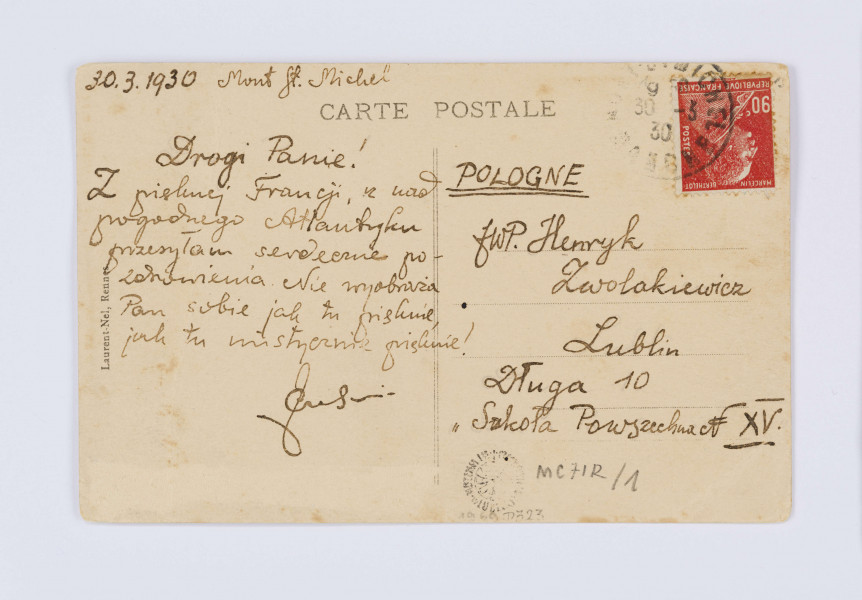 30.3.1930 Mont St. Michel
CARTE POSTALE
Drogi Panie!
Z pięknej Francji, z nad
pogodnego Atlantyku
przesyłam serdeczne po-
zdrowienia. Nie wyobraża
Pan sobie jak tu pięknie
jak tu mistycznie pięknie!
Laurent-Nel, Rennes
POLOGNE
JWP. Henryk
Zwolakiewicz
Lublin
Długa 10
"Szkoła Powszechna № XV.
MC71R/1
30 -3
30
REPUBLIQUE FRANÇAISE
90c
POSTES
MARCELIN BERTHELOT